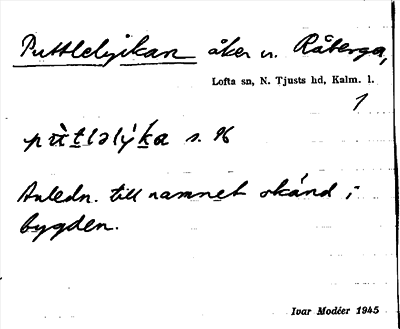 Puttlelyckan åker u. Råberga,
Lofta sn, N. Tjusts hd, Kalm. l.
1
Anledn. till namnet okänd i
bygden.
Ivar Modéer 1945